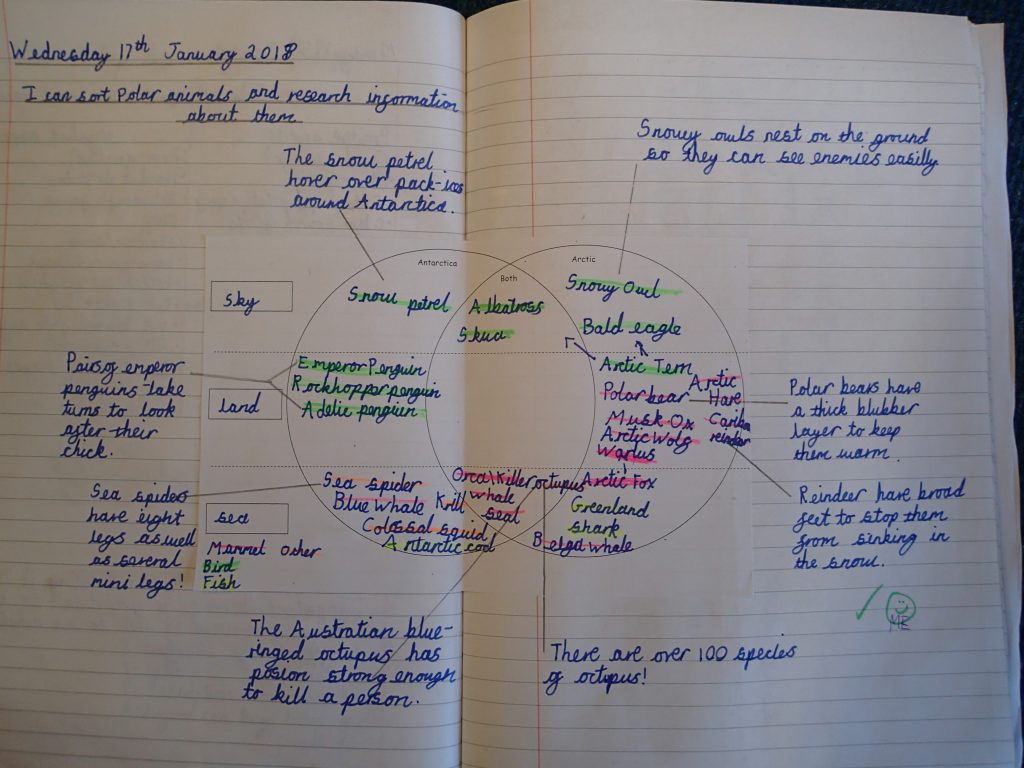 Wednesday 17th January 2018
I can sort Polar animals and research information
about them
The snow petrel
hover over pack-ices
around Antarctica.
Snowy owls nest on the ground
so they can see enemies easilly
Antarctica
Both
Arctic
Sky
Snow petrel
Albatross
Skua
Snowy Owl
Bald eagle
Pairs of emperor
penguins take
turns to look
after their
chick.
Land
Emperor Penguin
Rockhopper penguin
Adelie penguin
Artic Tern
Polar bear
Musk Ox
Arctic Wolf
Warlus
Arctic
Hare
reinder
Polar bears have
a thick blubber
layer to keep
them warm.
Sea spiders
have eight
legs as well
as several
mini legs!
sea
Sea spider
Blue Whale Krill
Colossal squid
Antarctic cod
Orca\Killer
whale
seal
octupus
Arctic Fox
Greenland
shark
Belga whale
Reindeer have broad
feet to stop them
from sinking in
the snow.
Mammel Other
Bird
Fish
The Australian blue-
ringed octupus has
posion strong enough
to kill a person.
There are over 100 species
of octupus!